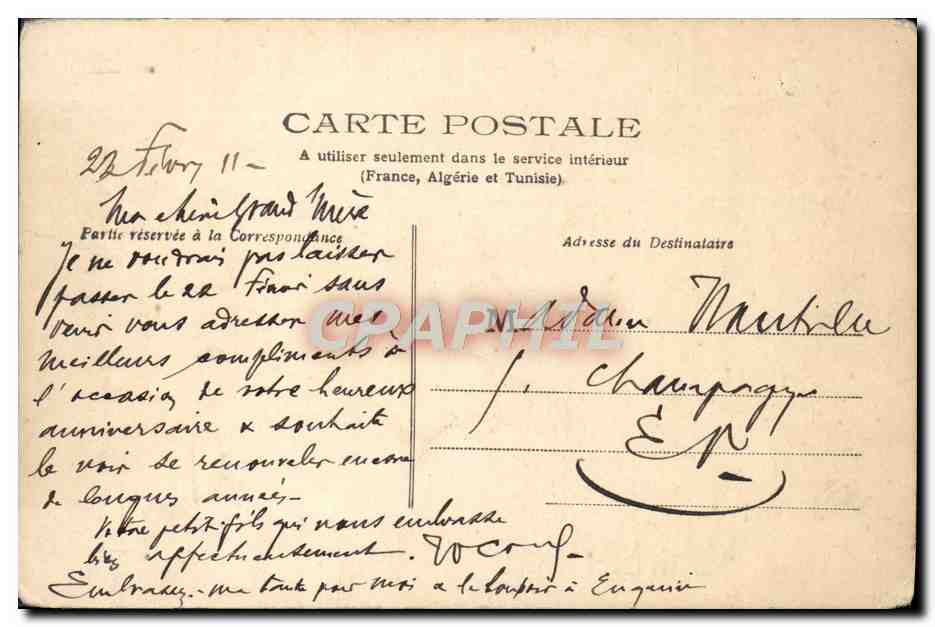 CARTE POSTALE
A utiliser seulement dans le service intérieur
(France, Algérie et Tunisie)
22 11 -
Ma chère Grand Mère
Partie réservée à la Correspondance
Adresse du Destinataire
Je ne voudrais pas laisser
passer le 22 Février sans
venir vous adresser mes
meilleurs compliments à
l'occasion de votre heureux
anniversaire & souhaite
le voir se renouveler encore
de longues années -
Votre petit fils qui vous embrasse
bien affectueusement.
Embrassez - ma tante pour moi & le à
M
Champagne
E P
CPAPHIL